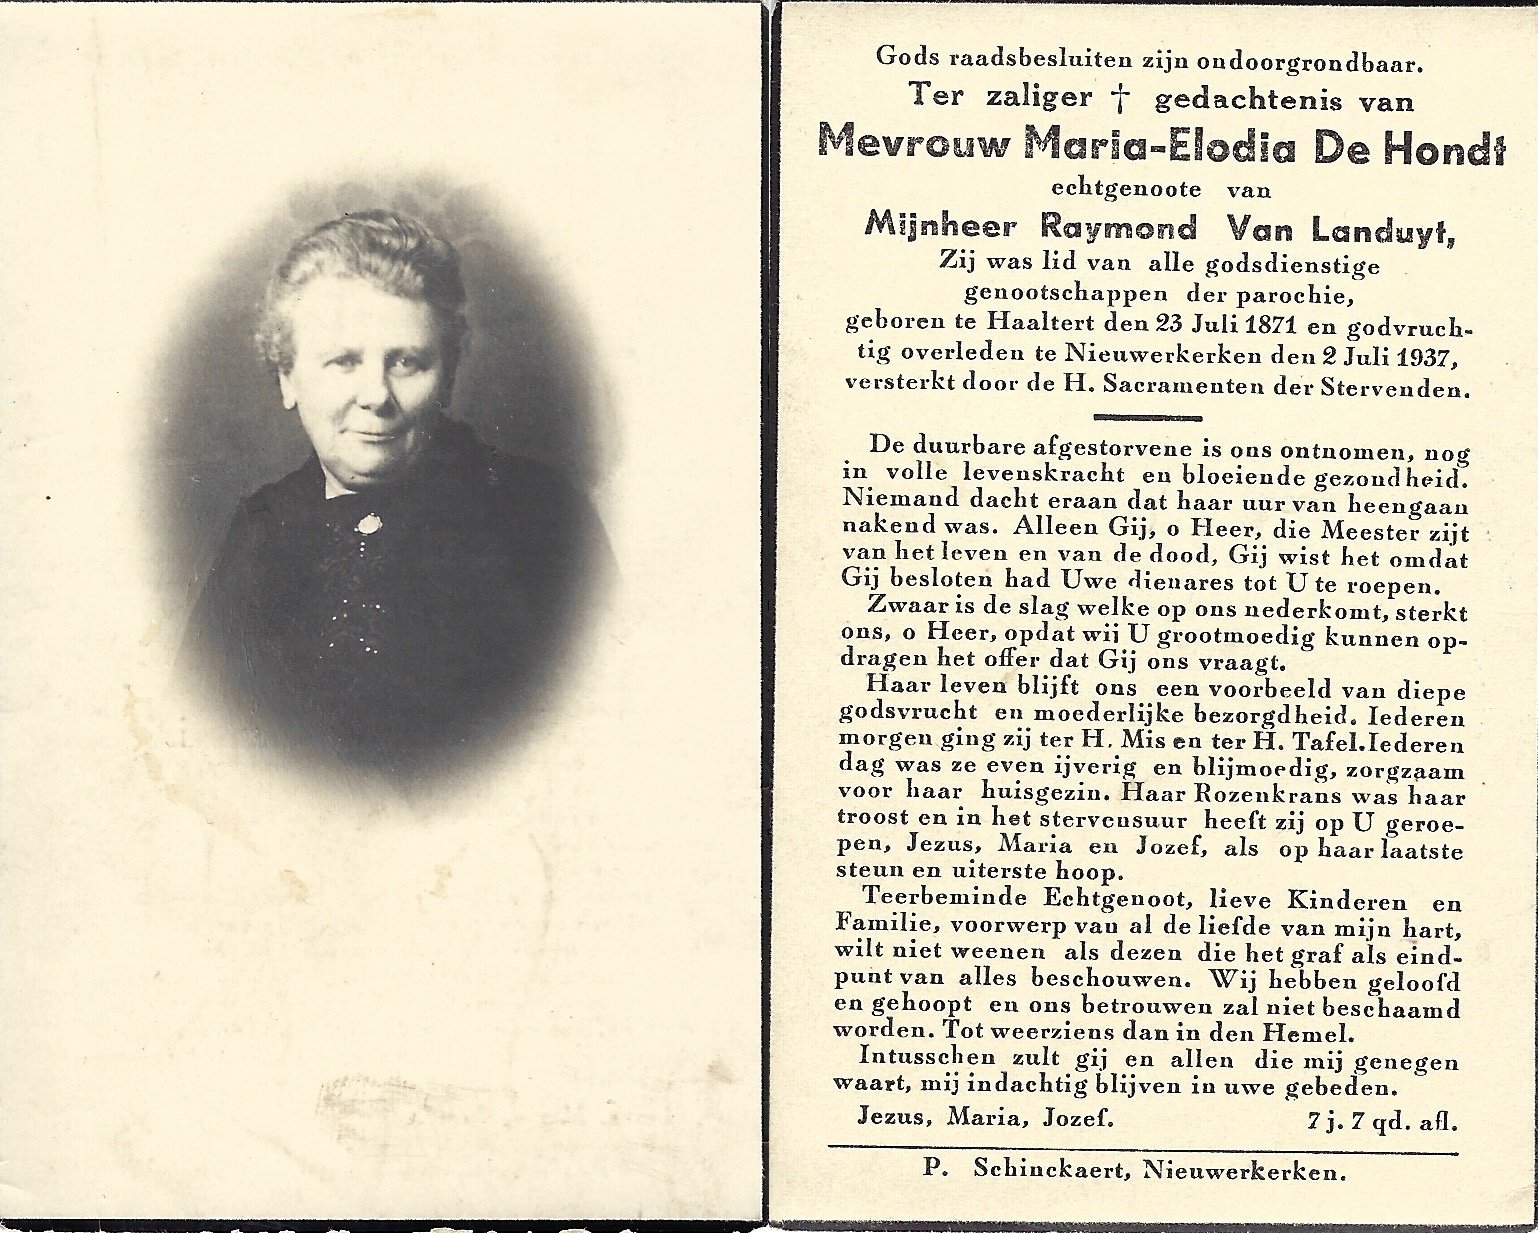 Gods raadsbesluiten zijn ondoorgrondbaar.
Ter zaliger † gedachtenis van
Mevrouw Maria-Elodia De Hondt
echtgenoote van
Mijnheer Raymond Van Landuyt,
Zij was lid van alle godsdienstige
genootschappen der parochie,
geboren te Haaltert den 23 Juli 1871 en godvruch-
tig overleden te Nieuwerkerken den 2 Juli 1937,
versterkt door de H. Sacramenten der Stervenden.
De duurbare afgestorvene is ons ontnomen, nog
in volle levenskracht en bloeiende gezondheid.
Niemand dacht eraan dat haar uur van heengaan
nakend was. Alleen Gij, o Heer, die Meester zijt
van het leven en van de dood, Gij wist het omdat
Gij besloten had Uwe dienares tot U te roepen.
Zwaar is de slag welke op ons nederkomt, sterkt
ons, o Heer, opdat wij U grootmoedig kunnen op-
dragen het offer dat Gij ons vraagt.
Haar leven blijft ons een voorbeeld van diepe
godsvrucht en moederlijke bezorgdheid. Iederen
morgen ging zij ter H. Mis en ter H. Tafel. Iederen
dag was ze even ijverig en blijmoedig, zorgzaam
voor haar huisgezin. Haar Rozenkrans was haar
troost en in het stervensuur heeft zij op U geroe-
pen, Jezus, Maria en Jozef, als op haar laatste
steun en uiterste hoop.
Teerbeminde Echtgenoot, lieve Kinderen en
Familie, voorwerp van al de liefde van mijn hart,
wilt niet weenen als dezen die het graf als eind-
punt van alles beschouwen. Wij hebben geloofd
en gehoopt en ons betrouwen zal niet beschaamd
worden. Tot weerziens dan in den Hemel.
Intusschen zult gij en allen die mij genegen
waart, mij indachtig blijven in uwe gebeden.
Jezus, Maria, Jozef. 7 j. 7 qd. afl.
P. Schinckaert, Nieuwerkerken.